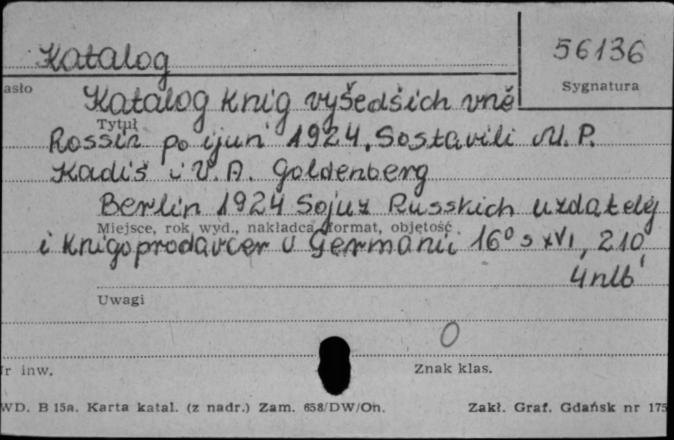 Katalog
56136
asło
Sygnatura
Katalog knig vyšedšich vně
Tytuł
Rossii po ijun' 1924. Sostavili M. P.
Kadiš i V. A. Goldenberg
Berlin 1924 Sojuz Russkich uzdatelej
Miejsce, rok wyd., nakładca, format, objętość
i knigoprodavcev v Germanii 16° s XVI, 210
4 nlb
Uwagi
O
r inw.
Znak klas.
WD. B 15a. Karta katal. (z nadr.) Zam. 658/DW/Oh.
Zakł. Graf. Gdańsk nr 175